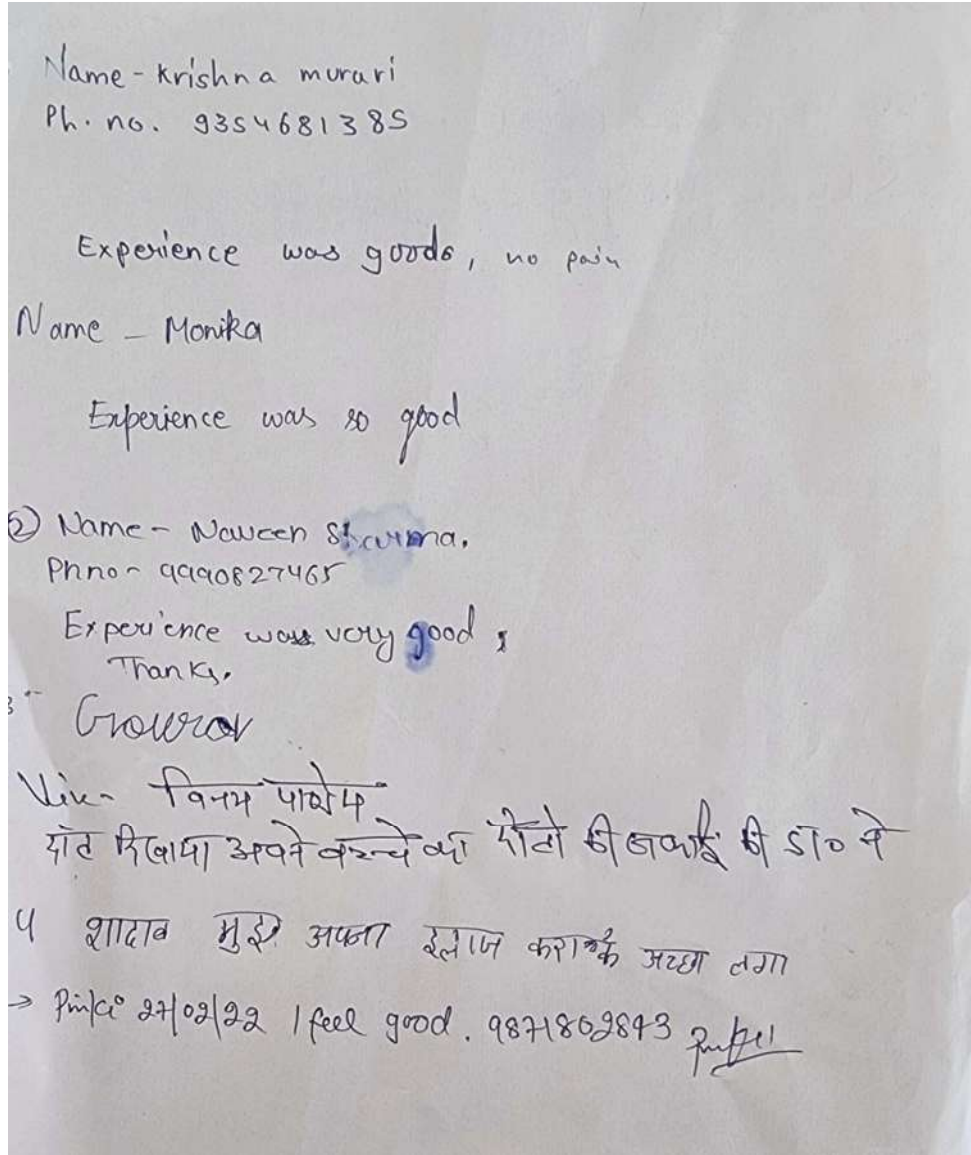 Name - Krishna murari
Ph. no. 9354681385
Experience was goods, no pain
Name - Monika
Experience was so good
② Name - Naveen Sharma.
Phno - 9990827465
Experience was very good,
Thanks.
3 Gourav
विनय पाण्डेय
दांत दिखाया अपने बच्चे का दाँतो की सफाई की डा० ने
4 शादाब मुझे अपना ईलाज कराके अच्छा लगा
→ Pinki 27/02/22 I feel good. 9871802843